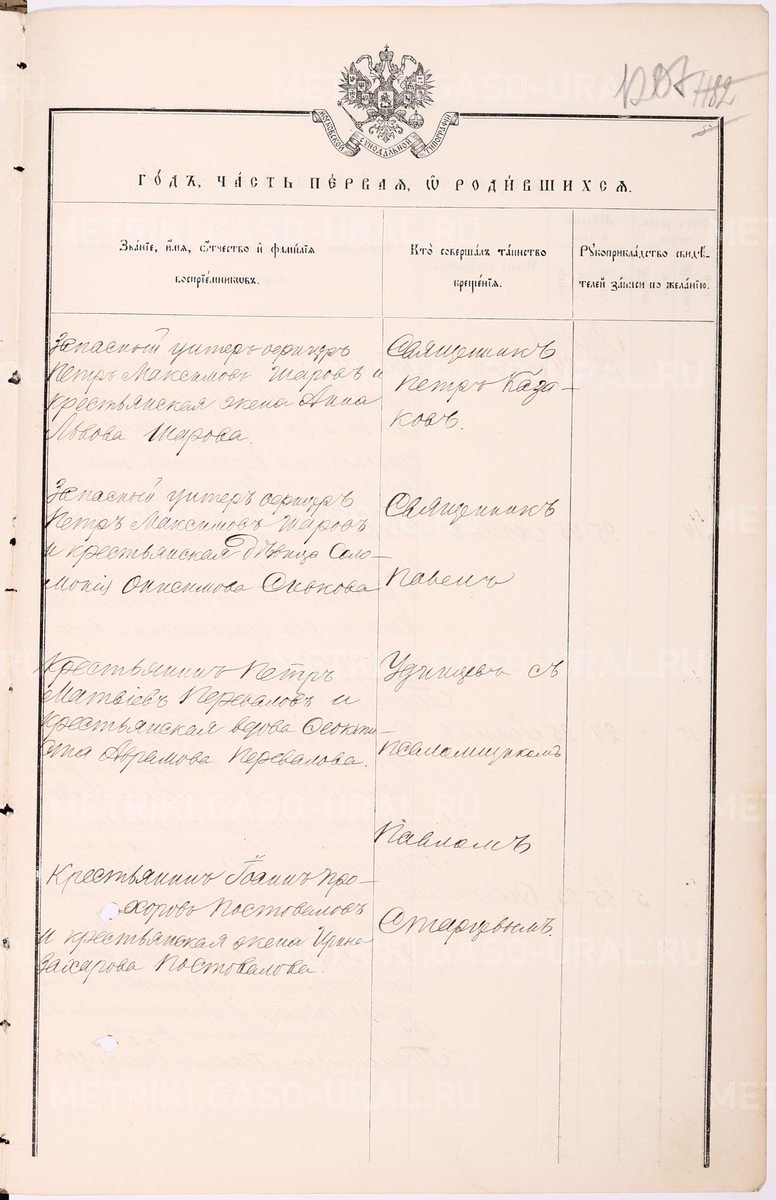 1182
МОСКОВСКОЙ СѴНОДАЛЬНОЙ ТИПОГРАФІИ
ГО́ДЪ, ЧА́СТЬ ПЕ́РВАЯ, Ѽ РОДИ́ВШИХСЯ.
Зва́нїе, и҆́мя, ѻ҆́тчество и҆ фами́лїя
воспрїе́мниковъ.
Кто̀ соверша́лъ та́инство
креще́нїя.
Рꙋкоприкла́дство свидѣ́-
телей за́писи по жела́нїю.
Запасный унтеръ офицеръ
Петръ Максимовъ Шаровъ и
крестьянская жена Анна
Львова Шарова.
Священникъ
Петръ Каза-
ковъ.
Запасный унтеръ офицеръ
Петръ Максимовъ Шаровъ
и крестьянская дѣвица Соло-
монія Онисимова
Священникъ
Павелъ
Удинцевъ съ
псаломщикомъ
Павломъ
Старцевымъ.
Крестьянинъ Петръ
Матвіевъ Перваловъ и
крестьянская вдова Ѳеокти-
ста Аврамова Первалова.
Крестьянинъ Іоаннъ Про-
хоровъ Постоваловъ
и крестьянская жена Ирина
Захарова Постовалова.
METRIKI.GASO-URAL.RU